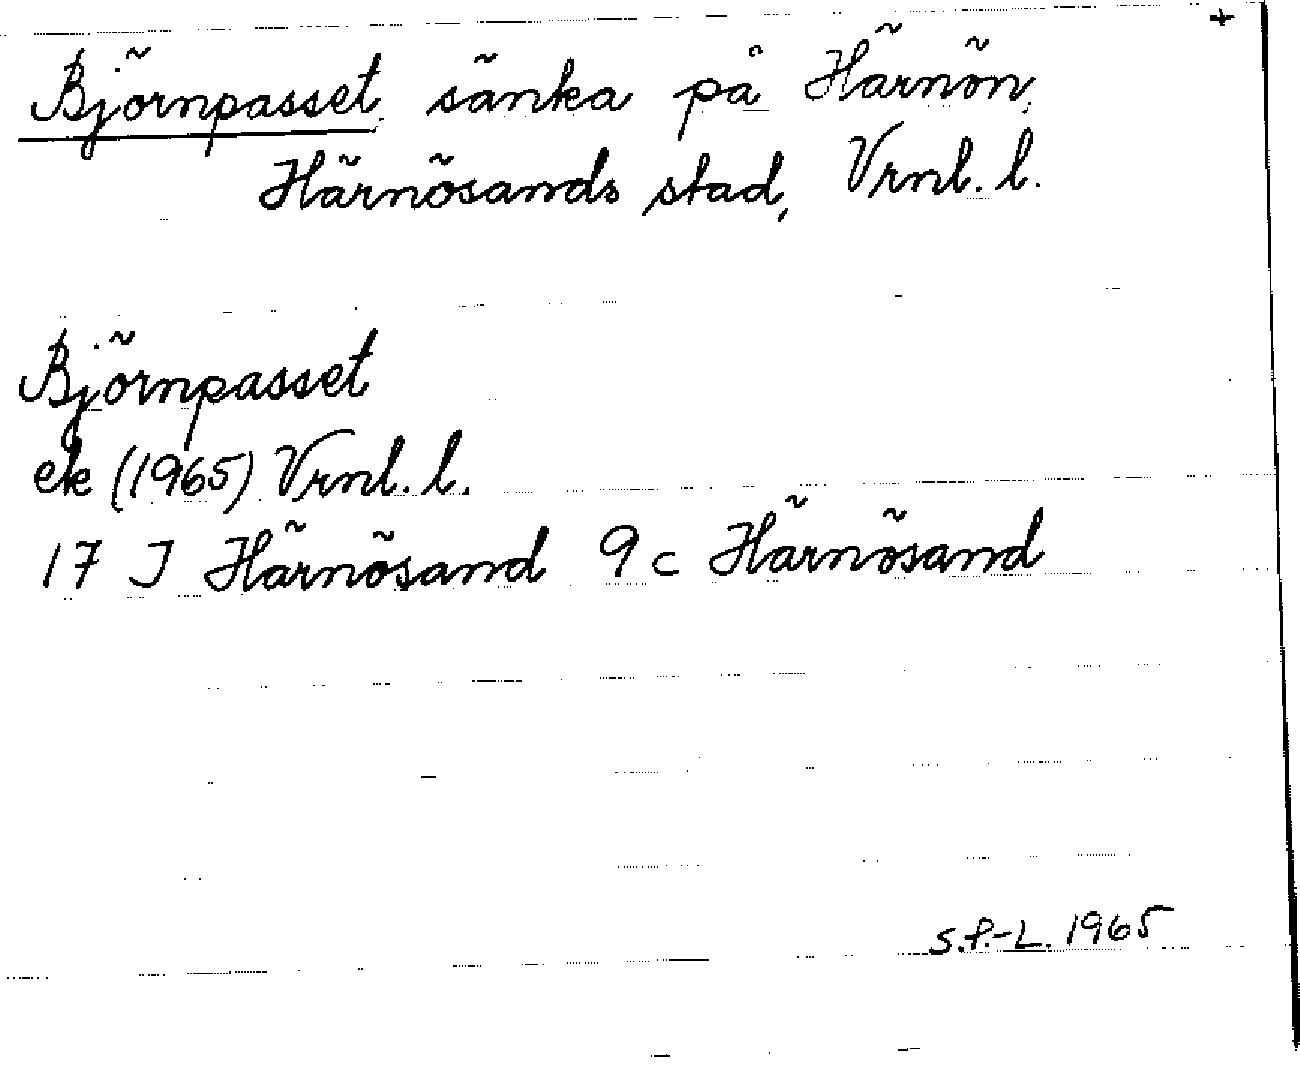 +
Björnpasset sänka på Härnön,
Härnösands stad, Vrnl. l.
Björnpasset
ek (1965) Vrnl. l.
17 J Härnösand 9 c Härnösand
S.P.-L. 1965